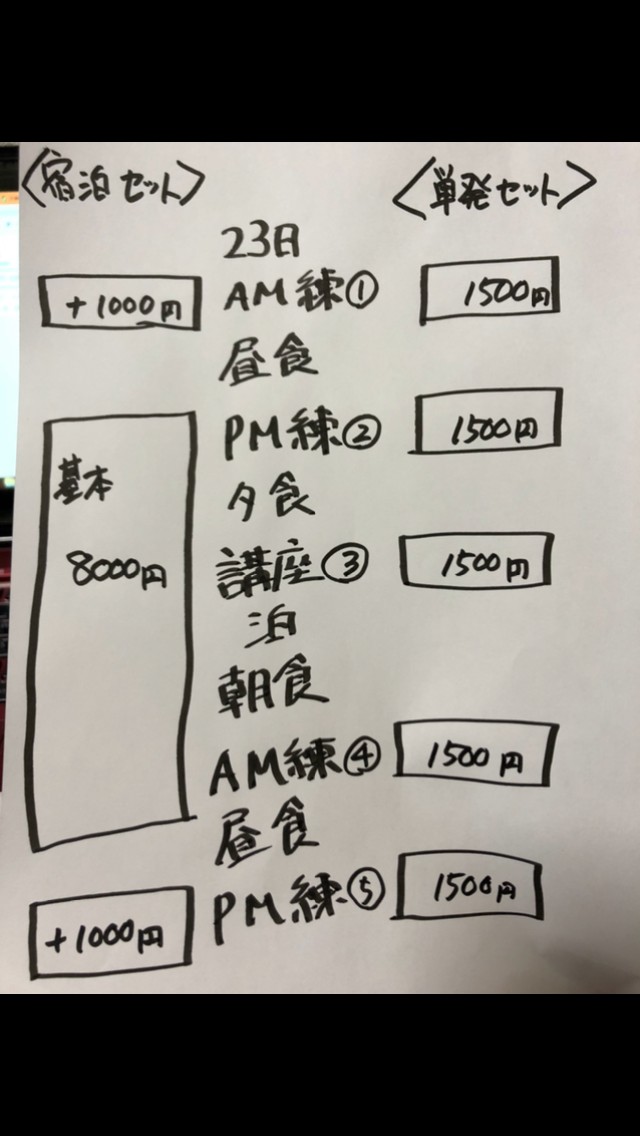 <宿泊セット>
<単発セット>
23日
+1000円
AM練①
1500円
昼食
PM練②
1500円
基本
夕食
8000円
講座③
1500円
泊
朝食
AM練④
1500円
昼食
PM練⑤
1500円
+1000円